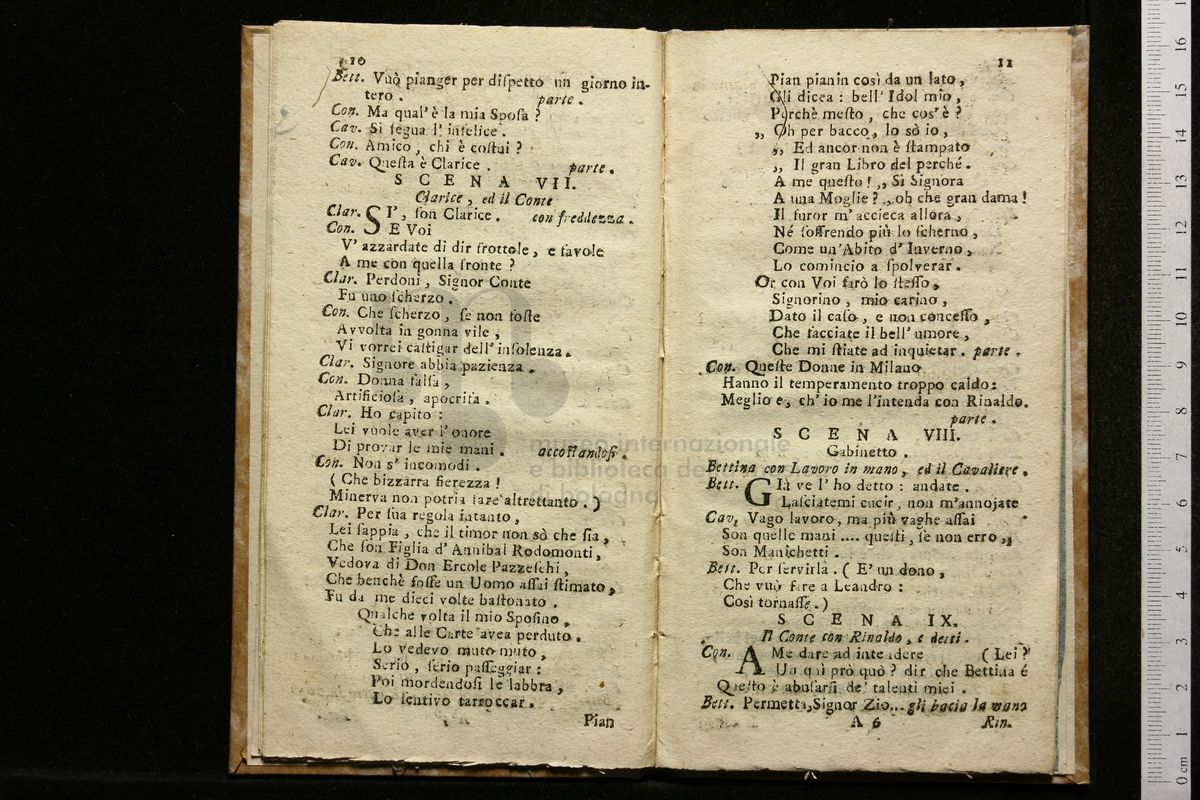 10
Bett. Vuò pianger per dispetto un giorno in-
tero . parte .
Con. Ma qual' è la mia Sposa ?
Cav. Si segua l' infelice .
Con. Amico , chi è costui ?
Cav. Questa è Clarice . parte .
SCENA VII.
Clarice , ed il Conte
Clar. SI' , son Clarice . con freddezza .
Con. SE Voi
V' azzardate di dir frottole , e favole
A me con quella fronte ?
Clar. Perdoni , Signor Conte
Fu uno scherzo .
Con. Che scherzo , se non foste
Avvolta in gonna vile ,
Vi vorrei castigar dell' insolenza .
Clar. Signore abbia pazienza .
Con. Donna falsa ,
Artificiosa , apocrifa .
Clar. Ho capito :
Lei vuole aver l' onore
Di provar le mie mani . accostandosi .
Con. Non s' incomodi .
( Che bizzarra fierezza !
Minerva non potria fare altrettanto . )
Clar. Per sua regola intanto ,
Lei sappia , che il timor non sò che sia ,
Che son Figlia d' Annibal Rodomonti ,
Vedova di Don Ercole Pazzeschi ,
Che benchè fosse un Uomo assai stimato ,
Fu da me dieci volte bastonato .
Qualche volta il mio Sposino ,
Che alle Carte avea perduto .
Lo vedevo muto muto ,
Serio , serio passeggiar :
Poi mordendosi le labbra ,
Lo sentivo tarroccar .
Pian
11
Pian pianin così da un lato ,
Gli dicea : bell' Idol mio ,
Perchè mesto , che cos' è ?
,, Oh per bacco , lo sò io ,
,, Ed ancor non è stampato
,, Il gran Libro del perché .
A me questo ! ,, Si Signora
A una Moglie ? ,, oh che gran dama !
Il furor m' accieca allora ,
Né soffrendo più lo scherno ,
Come un' Abito d' Inverno ,
Lo comincio a spolverar .
Or con Voi farò lo stesso ,
Signorino , mio carino ,
Dato il caso , e non concesso ,
Che facciate il bell' umore ,
Che mi stiate ad inquietar . parte .
Con. Queste Donne in Milano
Hanno il temperamento troppo caldo :
Meglio è , ch' io me l'intenda con Rinaldo .
parte .
SCENA VIII.
Gabinetto .
Bettina con Lavoro in mano , ed il Cavaliere .
Bett. Già ve l' ho detto : andate .
Lasciatemi cucir , non m'annojate
Cav. Vago lavoro , ma più vaghe assai
Son quelle mani .... questi , se non erro ,,
Son Manichetti .
Bett. Per servirla . ( E' un dono ,
Che vuò fare a Leandro :
Così tornasse . )
SCENA IX.
Il Conte con Rinaldo , e detti .
Con. A Me dare ad intendere ( Lei ?
Un quì prò quò ? dir che Bettina é
Questo è abusarsi de' talenti miei .
Bett. Permetta, Signor Zio... gli bacia la mano
A 6 Rin.
museo internazionale
e biblioteca della
di bologna
0 cm 1 2 3 4 5 6 7 8 9 10 11 12 13 14 15 16